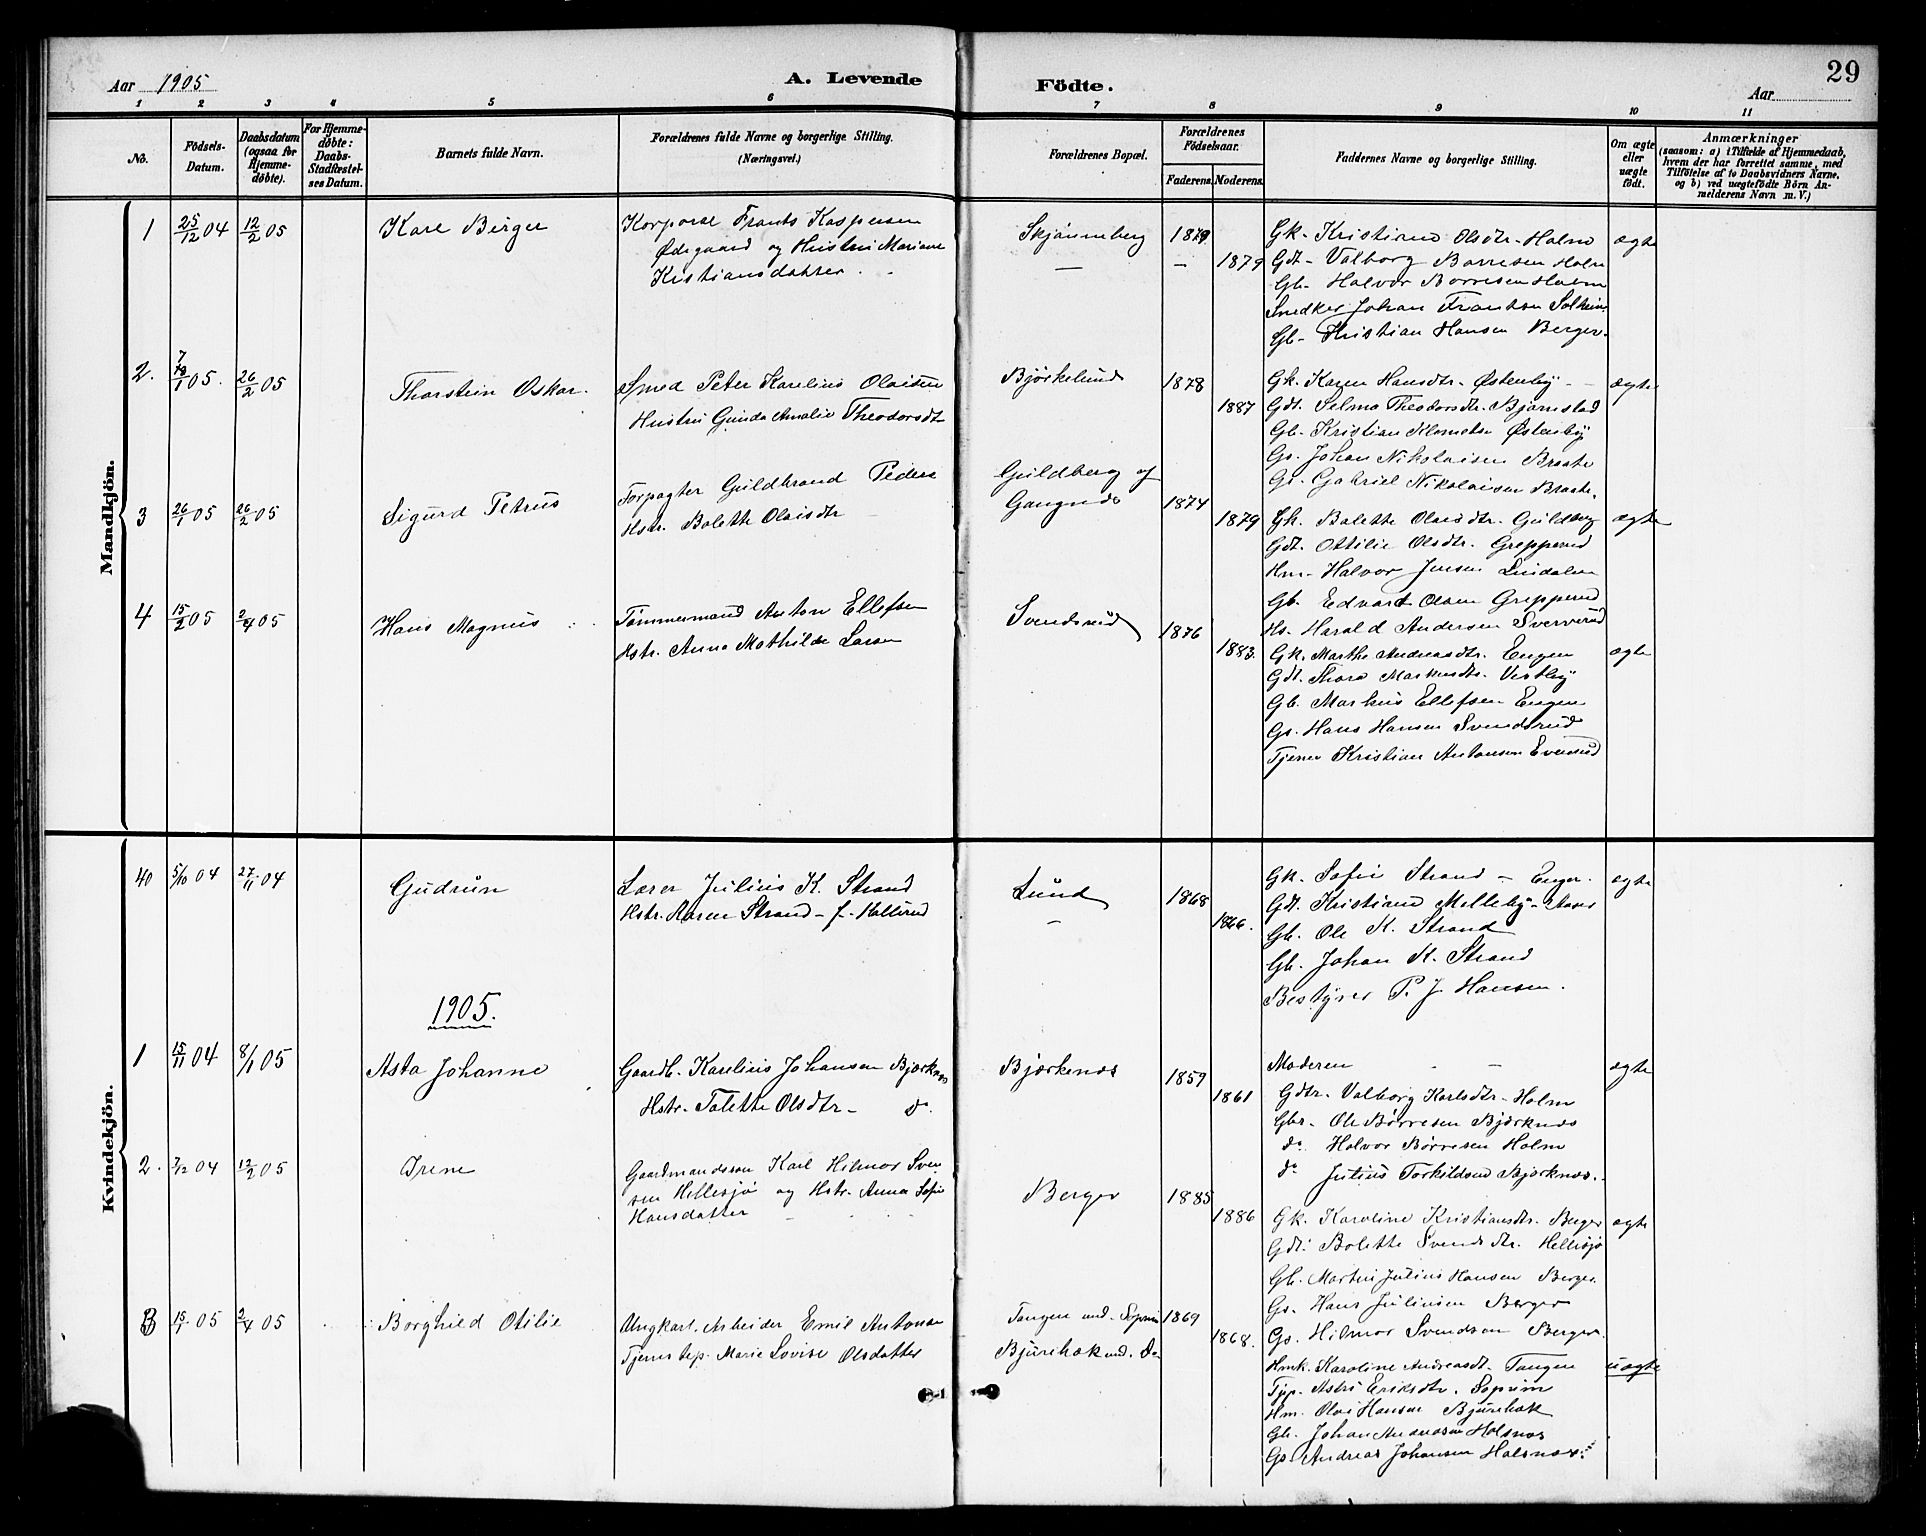 29
Aar 1905
A. Levende
Födte.
Aar
1 2 3 4 5 6 7 8 9 10 11
No.
Födsels-
Datum.
Daabsdatum
(ogsaa for
Hjemme-
döbte).
For Hjemme-
döbte:
Daabs-
Stadfæstel-
ses Datum.
Barnets fulde Navn.
Forældrenes fulde Navne og borgerlige Stilling.
(Næringsvei.)
Forældrenes Bopæl.
Forældrenes
Födselsaar.
Faderens. Moderens.
Faddernes Navne og borgerlige Stilling.
Om ægte
eller
uægte
født.
Anmærkninger
(saasom: a) i Tilfælde af Hjemmedaab,
hvem der har forrettet samme, med
Tilföielse af to Daabsvidners Navne,
og b) ved uægtefödte Börn An-
melderens Navn m. V.)
Mandkjön.
1 25/12 04 12/2 05 Karl Birger
Korporal Frants Kaspersen
Ødegaard og Hustru Mariane
Kristiansdatter
Skjønneberg 1879
— — 1879
Gk. Kristine Olsdtr. Holm ægte
Gdt. Valborg Børresen Holm
Gb. Halvor Børresen Holm
Snedker Johan Frantsen Solheim
Gb. Kristian Hansen Berger.
2. 7/1 05. 26/2 05 Thorstein Oskar.
Smed Peter Karelius Olaisen
Hustru Gunda Amalie Theodorsdt
Bjørkelund 1878
1887
Gk. Karen Hansdtr. Østenby ægte
Gdt. Selma Theodorsdtr. Bjørnstad
Gb. Kristian Klemetsen Østenby
Gs. Johan Nikolaisen Braate
Gs. Gabriel Nikolaisen Braate.
3 26/1 05 26/2 05 Sigurd Petrus
Forpagter Guldbrand Peders
Hstr. Bolette Olaisdtr
Guldberg af
Gangnes 1874
1879
Gk. Bolette Olaisdtr. Guldberg ægte
Gdt. Ottilie Olsdtr. Grepperud
Hm. Halvor Jensen Lindalen
Gb. Edvard Olsen Grepperud
Hs. Harald Andersen Sververud
4 15/2 05 2/4 05 Hans Magnus
Tømmermand Anton Ellefsen
Hstr. Anna Mathilde Larsen
Svendsrud 1876
1883.
Gk. Marthe Andreasdtr. Engen ægte
Gdt. Thora Markusdtr. Vestby
Gb. Markus Ellefsen Engen
Gs. Hans Hansen Svendsrud
Tjener Kristian Antonsen Evensrud
Kvindekjön.
40 5/10 04 27/11 04 Gudrun
Lærer Julius K. Strand
Hstr. Karen Strand f. Kollerud
Lund 1868
— 1866.
Gk. Sofie Strand – Enger. ægte
Gdt. Kristiane Melleby
Gb. Ole K. Strand
Gb. Johan K. Strand
Bestyrer P. J Hansen.
1905.
1 15/11 04 8/1 05 Asta Johanne
Gaardb. Karelius Johansen Bjørknes
Hstr. Tolette Olsdtr – do.
Bjørkenes 1859
1861
Moderen — ægte
Gdtr. Valborg Karlsdtr. Holm
Gbr. Ole Børresen Bjørknes
do Halvor Børresen Holm
do Julius Torkildsen Bjørknes.
2. 7/12 04 12/2 05 Irene
Gaardmandssøn Karl Hilmar Sven
sen Hellesjø og Hstr. Anna Sofie
Hansdatter
Berger 1885
1886
Gk. Karoline Kristiansdtr. Berger ægte
Gdt. Bolette Svendsdtr. Hellesjø
Gb. Martin Julius Hansen Berger.
Gs. Hans Juliusen Berger
Gs. Hilmar Svendsen Berger.
3 15/1 05 2/4 05 Borghild Otilie
Ungkarl. Arbeider Emil Antonsen
Tjenestep. Marie Lovise Olsdatter
Tangen und. Soprim 1869
Bjurehok und. Do 1868.
Hmk. Karoline Andreasdt. Tangen uægte
Tjp. Astri Eriksdtr. Soprim
Hm. Olai Hansen Bjurehok
Gb. Johan Andreasen Holsnes
Gs. Andreas Johansen Holsnes.